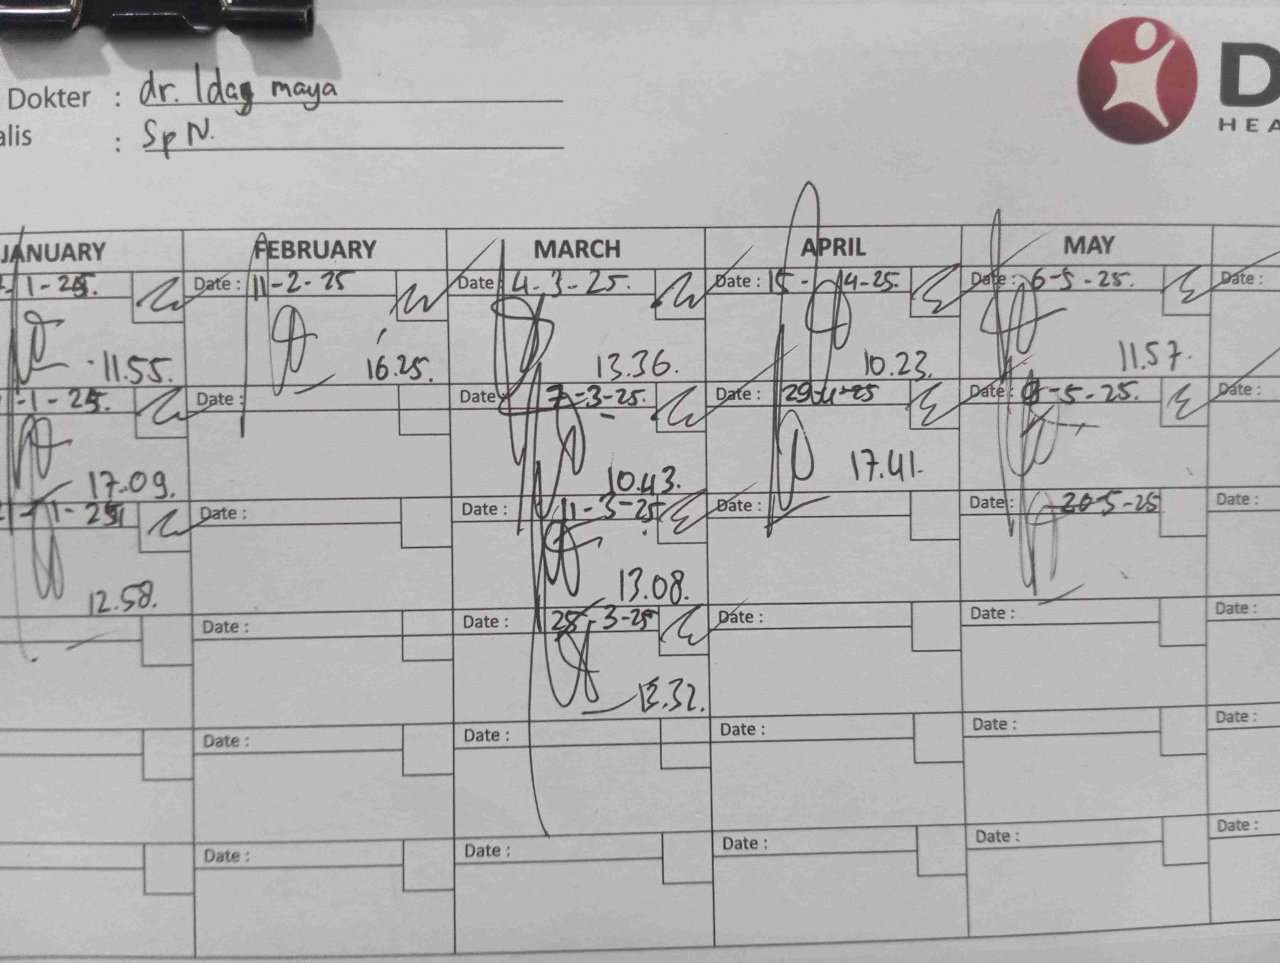 Dokter : dr. Idag maya
alis : Sp N.
D
HEA
JANUARY FEBRUARY MARCH APRIL MAY
-1-25. Date : 11-2-25 Date 4-3-25. Date : 15-4-25. Date : 6-5-25. Date :
11.55. 16.25. 13.36. 10.23. 11.57.
-1-25. Date : Date 7-3-25. Date : 29-4-25 Date : -5-25. Date :
17.09. 10.43. 17.41.
-1-25 Date : Date : 11-3-25 Date : Date : 20-5-25 Date :
12.58. 13.08.
Date : Date : 25-3-25 Date : Date : Date :
.32.
Date : Date : Date : Date : Date :
Date : Date : Date : Date : Date :